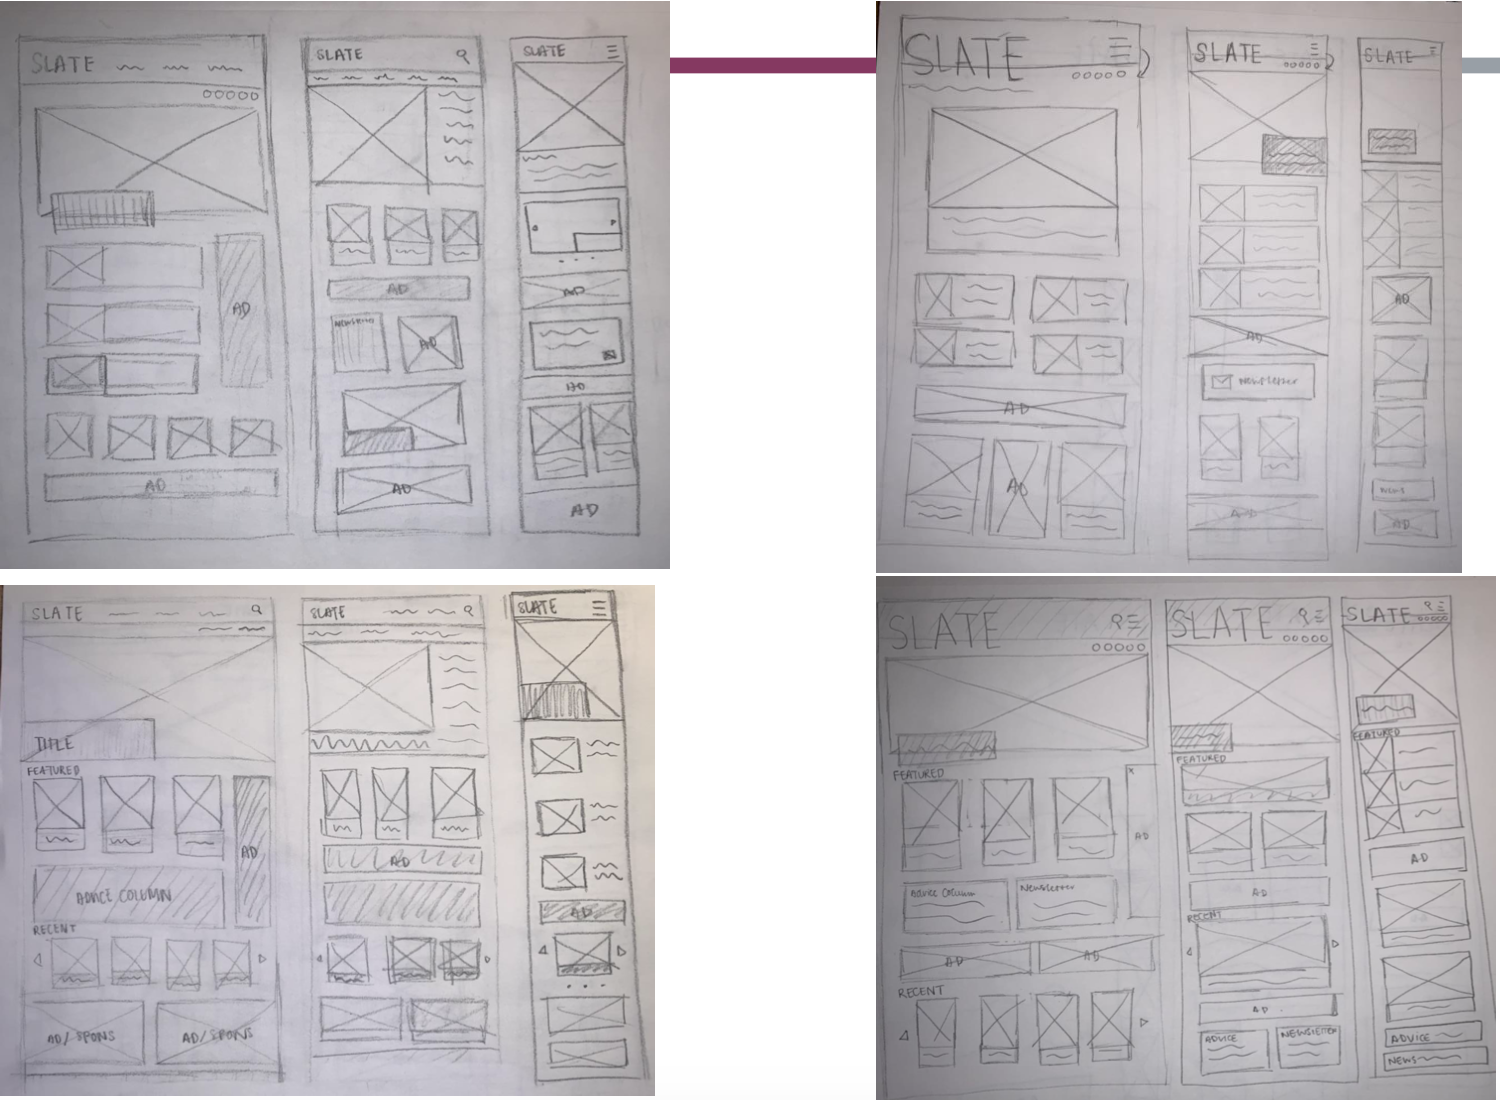 SLATE
AD
AD
SLATE
AD
AD
AD
SLATE
AD
AD
AD
SLATE
AD
AD
SLATE
AD
Newsletter
AD
SLATE
AD
NEWS
AD
SLATE
TITLE
FEATURED
AD
ADVICE COLUMN
RECENT
AD/SPONS
AD/SPONS
SLATE
AD
SLATE
AD
SLATE
FEATURED
AD
Advice Column
Newsletter
AD
AD
RECENT
SLATE
FEATURED
AD
RECENT
AD
ADVICE
NEWSLETTER
SLATE
FEATURED
AD
ADVICE
NEWS